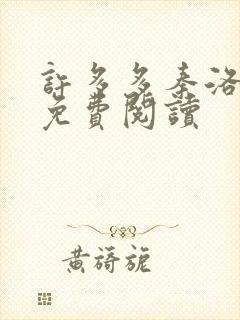 許多多秦洛
免費閱讀
黃旖旎